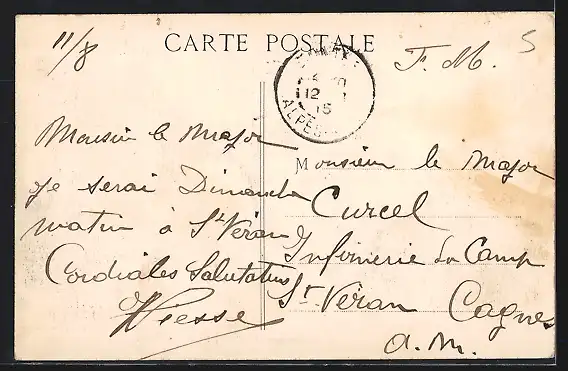 11/8
CARTE POSTALE
F. M.
5
12
15
ALPES
Monsieur le Major
Je serai Dimanche
matin à St Véran
Cordiales Salutations
Hesse
Monsieur le Major
Curcel
Infirmerie du Camp
St-Véran Cagnes
A. M.